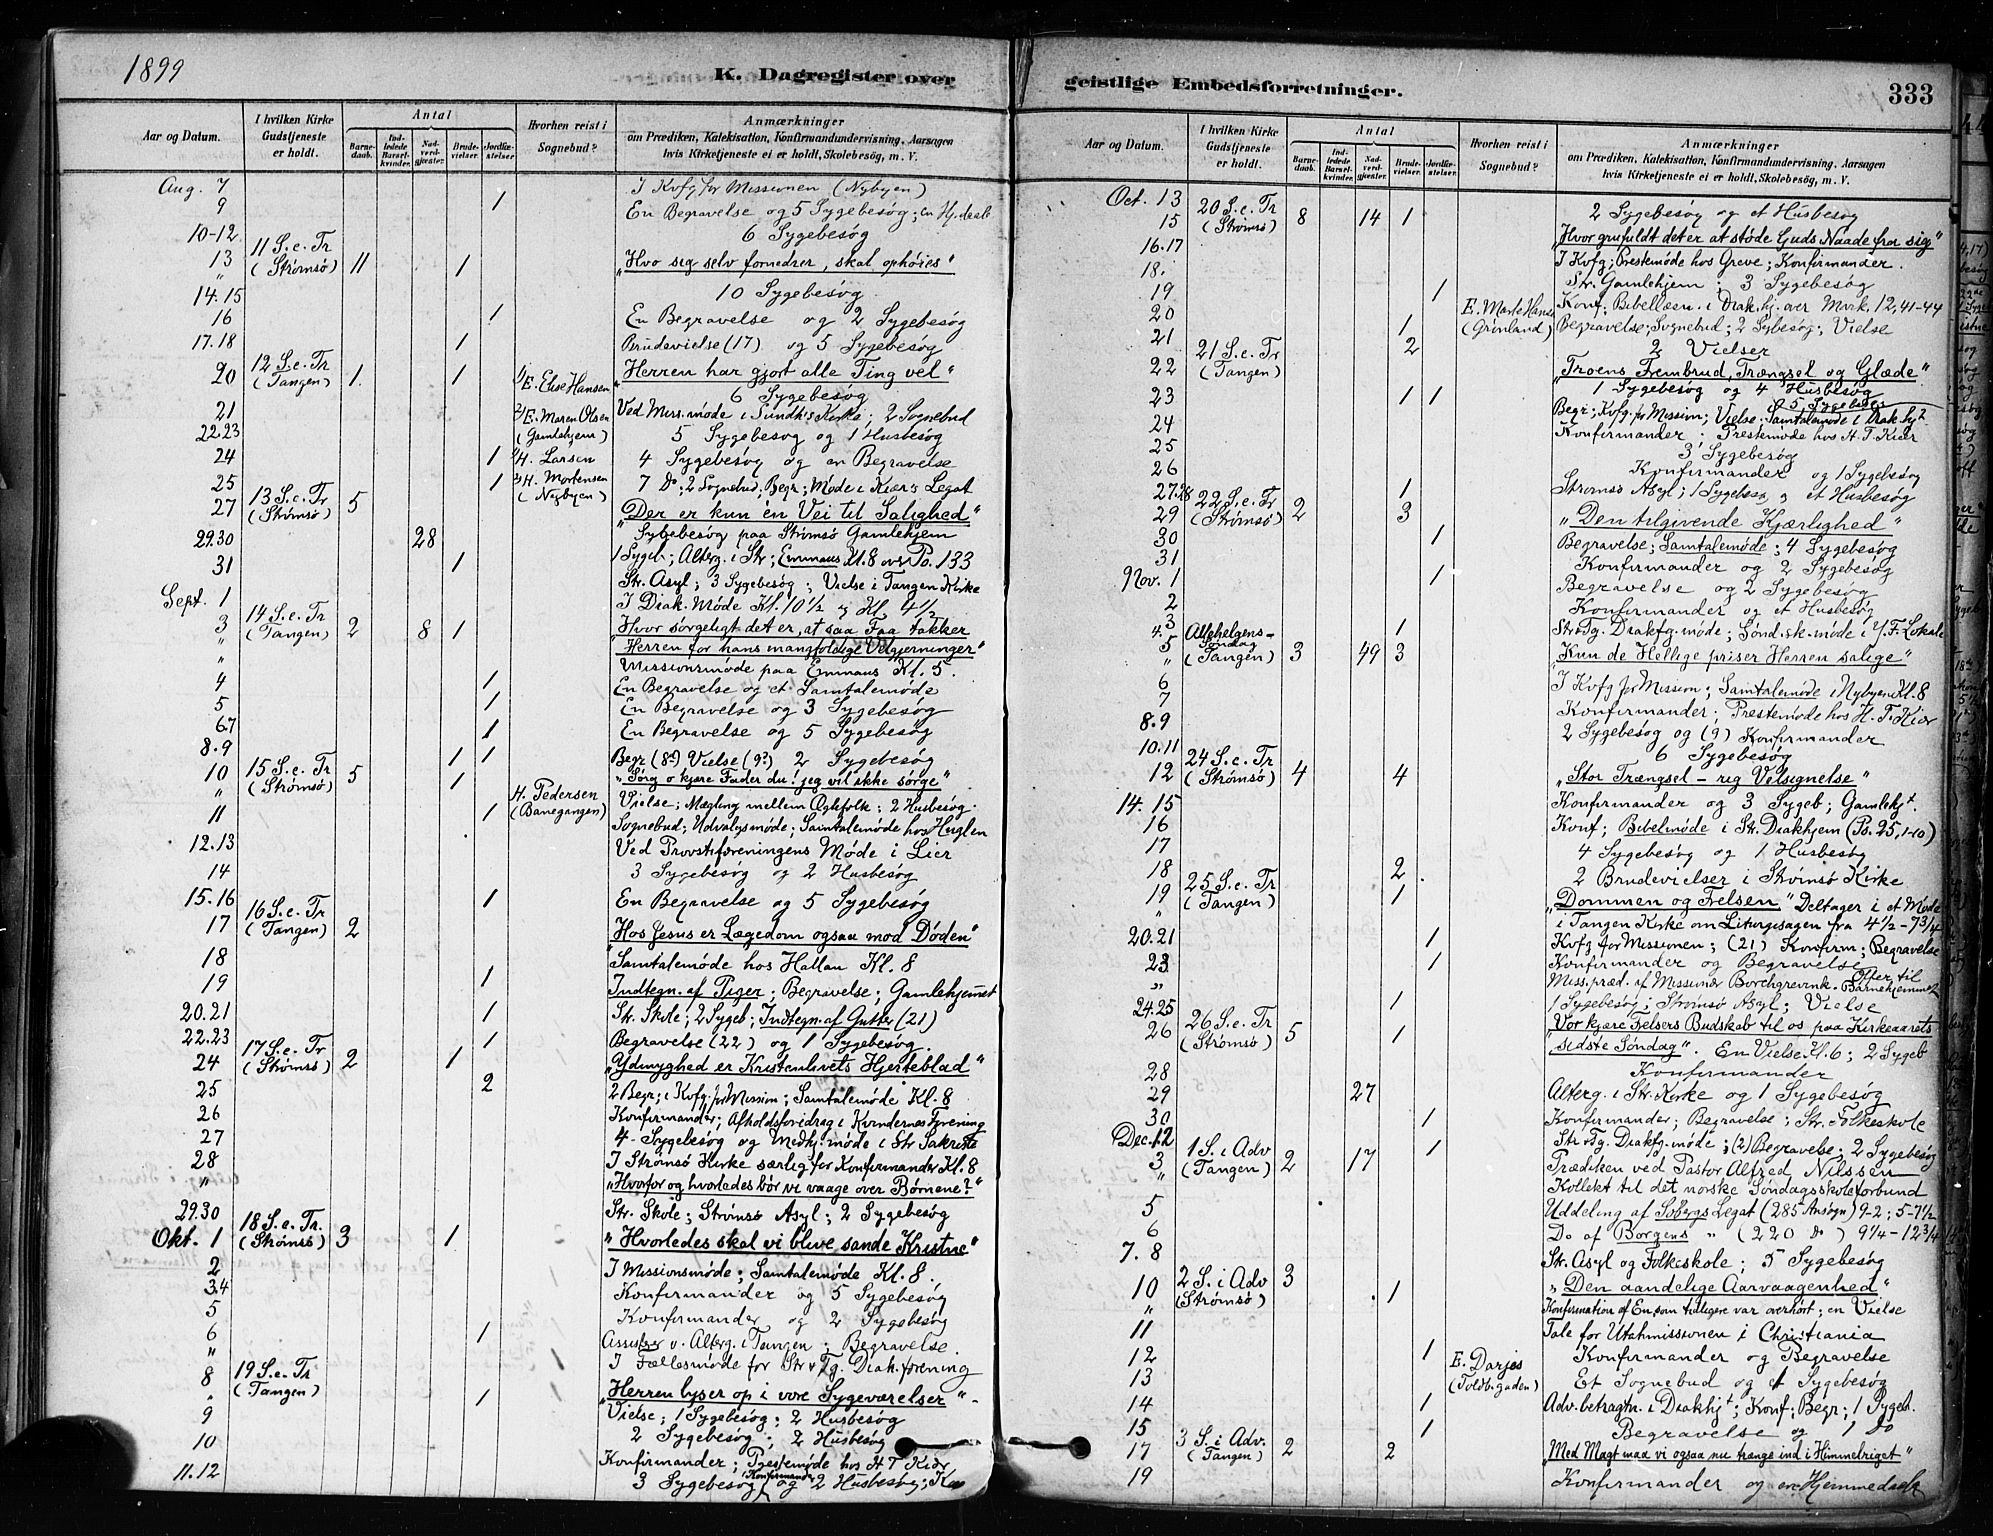 1899
K. Dagregister over
Aar og Datum.
I hvilken Kirke Gudstjeneste er holdt.
Antal
Barne-daab.
Ind-ledede Barsel-kvinder.
Nad-verd-gjester.
Brude-vielser.
Jordfæ-stelser.
Hvorhen reist i Sognebud?
Anmærkninger
om Prædiken, Katekisation, Konfirmandundervisning, Aarsagen
hvis Kirketjeneste ei er holdt, Skolebesøg, m. V.
Aug. 7 I Kvfg for Missionen (Nybyen)
9 1 En Begravelse og 5 Sygebesøg; en Hj.daab
10-12 6 Sygebesøg
13 11 S. e. Tr (Strømsø) 11 1 "Hvo sig selv fornedrer, skal ophøies"
" 10 Sygebesøg
14.15
16 1 En Begravelse og 2 Sygebesøg
17.18 1 Brudevielse (17) og 5 Sygebesøg
20 12 S. e. Tr (Tangen) 1. 1 1/E. Elise Hansen "Herren har gjort alle Ting vel"
6 Sygebesøg
21 2/E. Maren Olsen Ved Miss. møde i Sundt's Kirke; 2 Sognebud
22.23 (Gamlehjem) 5 Sygebesøg og 1 Husbesøg
24 1 H. Larsen 4 Sygebesøg og en Begravelse
25 1 H. Mortensen 7 Do; 2 Sognebud; Begr; Møde i Kiær's Legat
27 13 S. e. Tr (Strømsø) 5 (Nybyen) "Der er kun én Vei til Salighed"
29.30 28 Sygebesøg paa Strømsø Gamlehjem
31 1 1 Sygeb; Alterg. i Str; Emmaus Kl. 8 over Ps. 133
Str. Asyl; 3 Sygebesøg; Vielse i Tangen Kirke
Sept. 1 I Diak. Møde Kl. 10½ og Kl. 4½
3 14 S. e. Tr (Tangen) 2 8 1 "Hvor sørgeligt det er, at saa Faa takker
" Herren for hans mangfoldige Velgjerninger"
" Missionsmøde paa Emmaus Kl. 5.
4 1 En Begravelse og et Samtalemøde
5 1 En Begravelse og 3 Sygebesøg
6.7 1 En Begravelse og 5 Sygebesøg
8.9 1 1 Begr (8de) Vielse (9de) 2 Sygebesøg
10 15 S. e. Tr (Strømsø) 5 1 "Sørg o kjære Fader du! jeg vil ikke sørge"
" H. Pedersen Vielse; Mægling mellem Ægtefolk; 2 Husbesøg.
11 1 (Banegangen) Sognebud; Udvalgsmøde; Samtalemøde hos Huglen
12.13 Ved Provstiforeningens Møde i Lier
14 3 Sygebesøg og 2 Husbesøg
15.16 1 En Begravelse og 5 Sygebesøg
17 16 S. e. Tr (Tangen) 2 "Hos Jesus er Lægedom ogsaa mod Døden"
18 Samtalemøde hos Hallan Kl. 8
19 1 Indtegn. af Piger; Begravelse; Gamlehjemmet
20.21 1 Str. Skole; 2 Sygeb; Indtegn. af Gutter (21)
22.23 1 Begravelse (22) og 1 Sygebesøg.
24 17 S. e. Tr (Strømsø) 2 1 "Ydmyghed er Kristenlivets Hjerteblad"
25 2 2 Begr; i Kvfg. for Mission; Samtalemøde Kl. 8
26 Konfirmander; Afholdsforedrag i Kvindernes Forening
27 4 Sygebesøg og Medhj. møde i Str Sakristi
28 I Strømsø Kirke særlig for Konfirmander Kl. 8
" "Hvorfor og hvorledes bør vi vaage over Børnene?"
29.30 Str. Skole; Strømsø Asyl; 2 Sygebesøg
Okt. 1 18 S. e. Tr. (Strømsø) 3 1 "Hvorledes skal vi blive sande Kristne"
2 I Missionsmøde; Samtalemøde Kl. 8.
3.4 Konfirmander og 5 Sygebesøg
5 Konfirmander og 2 Sygebesøg
6 1 Assister v. Alterg. i Tangen; Begravelse.
" I Fællesmøde for Str. & Tg. Diak. forening
8 19 S. e. Tr (Tangen) "Herren lyser op i vore Sygeværelser"
" 1 Vielse; 1 Sygebesøg; 2 Husbesøg
9 2 Sygebesøg; 2 Husbesøg
10 Konfirmander; Prestemøde hos H T Kiær
11.12 3 Sygebesøg Konfirmander og 2 Husbesøg;
geistlige Embedsforretninger.
333
Aar og Datum.
I hvilken Kirke Gudstjeneste er holdt.
Antal
Barne-daab.
Ind-ledede Barsel-kvinder.
Nad-verd-gjester.
Brude-vielser.
Jordfæ-stelser.
Hvorhen reist i Sognebud?
Anmærkninger
om Prædiken, Katekisation, Konfirmandundervisning, Aarsagen
hvis Kirketjeneste ei er holdt, Skolebesøg, m. V.
Oct. 13 2 Sygebesøg og et Husbesøg
15 20 S. e. Tr (Strømsø) 8 14 1 "Hvor grufuldt det er at støde Guds Naade fra sig"
16.17 I Kvfg; Prestemøde hos Greve; Konfirmander.
18. Str. Gamlehjem; 3 Sygebesøg
19 1 Konf. Bibellæsn. i Diak.hj. over Mrk. 12, 41-44
20 E. Marte Hans (Grønland) Begravelse; Sognebud; 2 Sybesøg; Vielse
21 1 2 Vielser
22 21 S. e. Tr (Tangen) 2 "Troens Frembrud, Trængsel og Glæde"
1 Sygebesøg og 4 Husbesøg
23 1 1 5 Sygebesøg
Begr; Kvfg. for Mission; Vielse; Samtalemøde i Diak. hjt.
24 Konfirmander; Prestemøde hos H. T. Kiær
25 3 Sygebesøg
26 Konfirmander og 1 Sygebesøg
27.28 1 Strømsø Asyl; 1 Sygebesø og et Husbesøg
29 22 S. e. Tr (Strømsø) 2 3 "Den tilgivende Kjærlighed"
30 1 Begravelse; Samtalemøde; 4 Sygebesøg
31 Konfirmander og 2 Sygebesøg
Nov. 1 1 Begravelse og 2 Sygebesøg
2 Konfirmander og et Husbesøg
3 4. 1 Str & Tg. Diakfg. møde; Sønd. sk. møde i Y. F. Lokale
5 Allehelgens-Søndag (Tangen) 3 49 3 "Kun de Hellige priser Herren salige"
"
6 I Kvfg for Mission; Samtalemøde i Nybyen Kl. 8
7 Konfirmander; Prestemøde hos H. T. Kiær
8.9 2 Sygebesøg og (9) Konfirmander
10.11 6 Sygebesøg
12 24 S. e. Tr (Strømsø) 4 4 "Stor Trængsel - rig Velsignelse"
14. 15 Konfirmander og 3 Sygeb; Gamlehjt.
16 Konf; Bibelmøde i Str. Diakhjem (Ps. 25, 1-10)
17 4 Sygebesøg og 1 Husbesøg
18 2 2 Brudevielser i Strømsø Kirke
19 25 S. e. Tr (Tangen) 1 "Dommen og Frelsen" Deltager i et Møde
" i Tangen Kirke om Liturgisagen fra 4½ - 7¾
20.21 1 Kvfg for Missionen; (21) Konfirm; Begravelse
23 1 Konfirmander og Begravelse
" Miss. præd. af Missionær Borchgrevink. Ofter til Barnehjemmet
24.25 1 1 Sygebesøg; Strømsø Asyl; Vielse
26 26 S. e. Tr (Strømsø) 5 1 "Vor kjære Frelsers Budskab til os paa Kirkeaarets
sidste Søndag". En Vielse Kl. 6; 2 Sygeb
28 Konfirmander
29 27 Alterg. i Str. Kirke og 1 Sygebesøg
30 1 Konfirmander; Begravelse; Str. Folkeskole
Dec. 1.2 1 Str & Tg. Diakfg. møde; (2) Begravelse; 2 Sygebesøg
3 1 S. i Adv (Tangen) 2 17 Prædiken ved Pastor Alfred Nilssen
" Kollekt til det norske Søndagsskoleforbund
5 Uddeling af Sobergs Legat (285 Ansøgn) 9-2; 5-7½
6 Do af Borgens " (220 Do) 9¼ - 12¾
7. 8 Str. Asyl og Folkeskole; 5 Sygebesøg
10 2 S. i Adv (Strømsø) 3 1 "Den aandelige Aarvaagenhed"
" Konfirmation af En, som tidligere var overhørt; en Vielse
11 Tale for Utahmissionen i Christiania
12 1 Konfirmander og Begravelse
13 E. Darjes (Toldbgaden) Et Sognebud og 1 Sygebesøg
14 1 Adv. betragtn. i Diakhjt; Konf; Begr; 1 Sygeb.
15 1 Begravelse og 1 Do
17 3 S. i Adv. (Tangen) 2 2 "Med Magt maa vi ogsaa nu trænge ind i Himmelriget"
19 Konfirmander og en Hjemmedaab